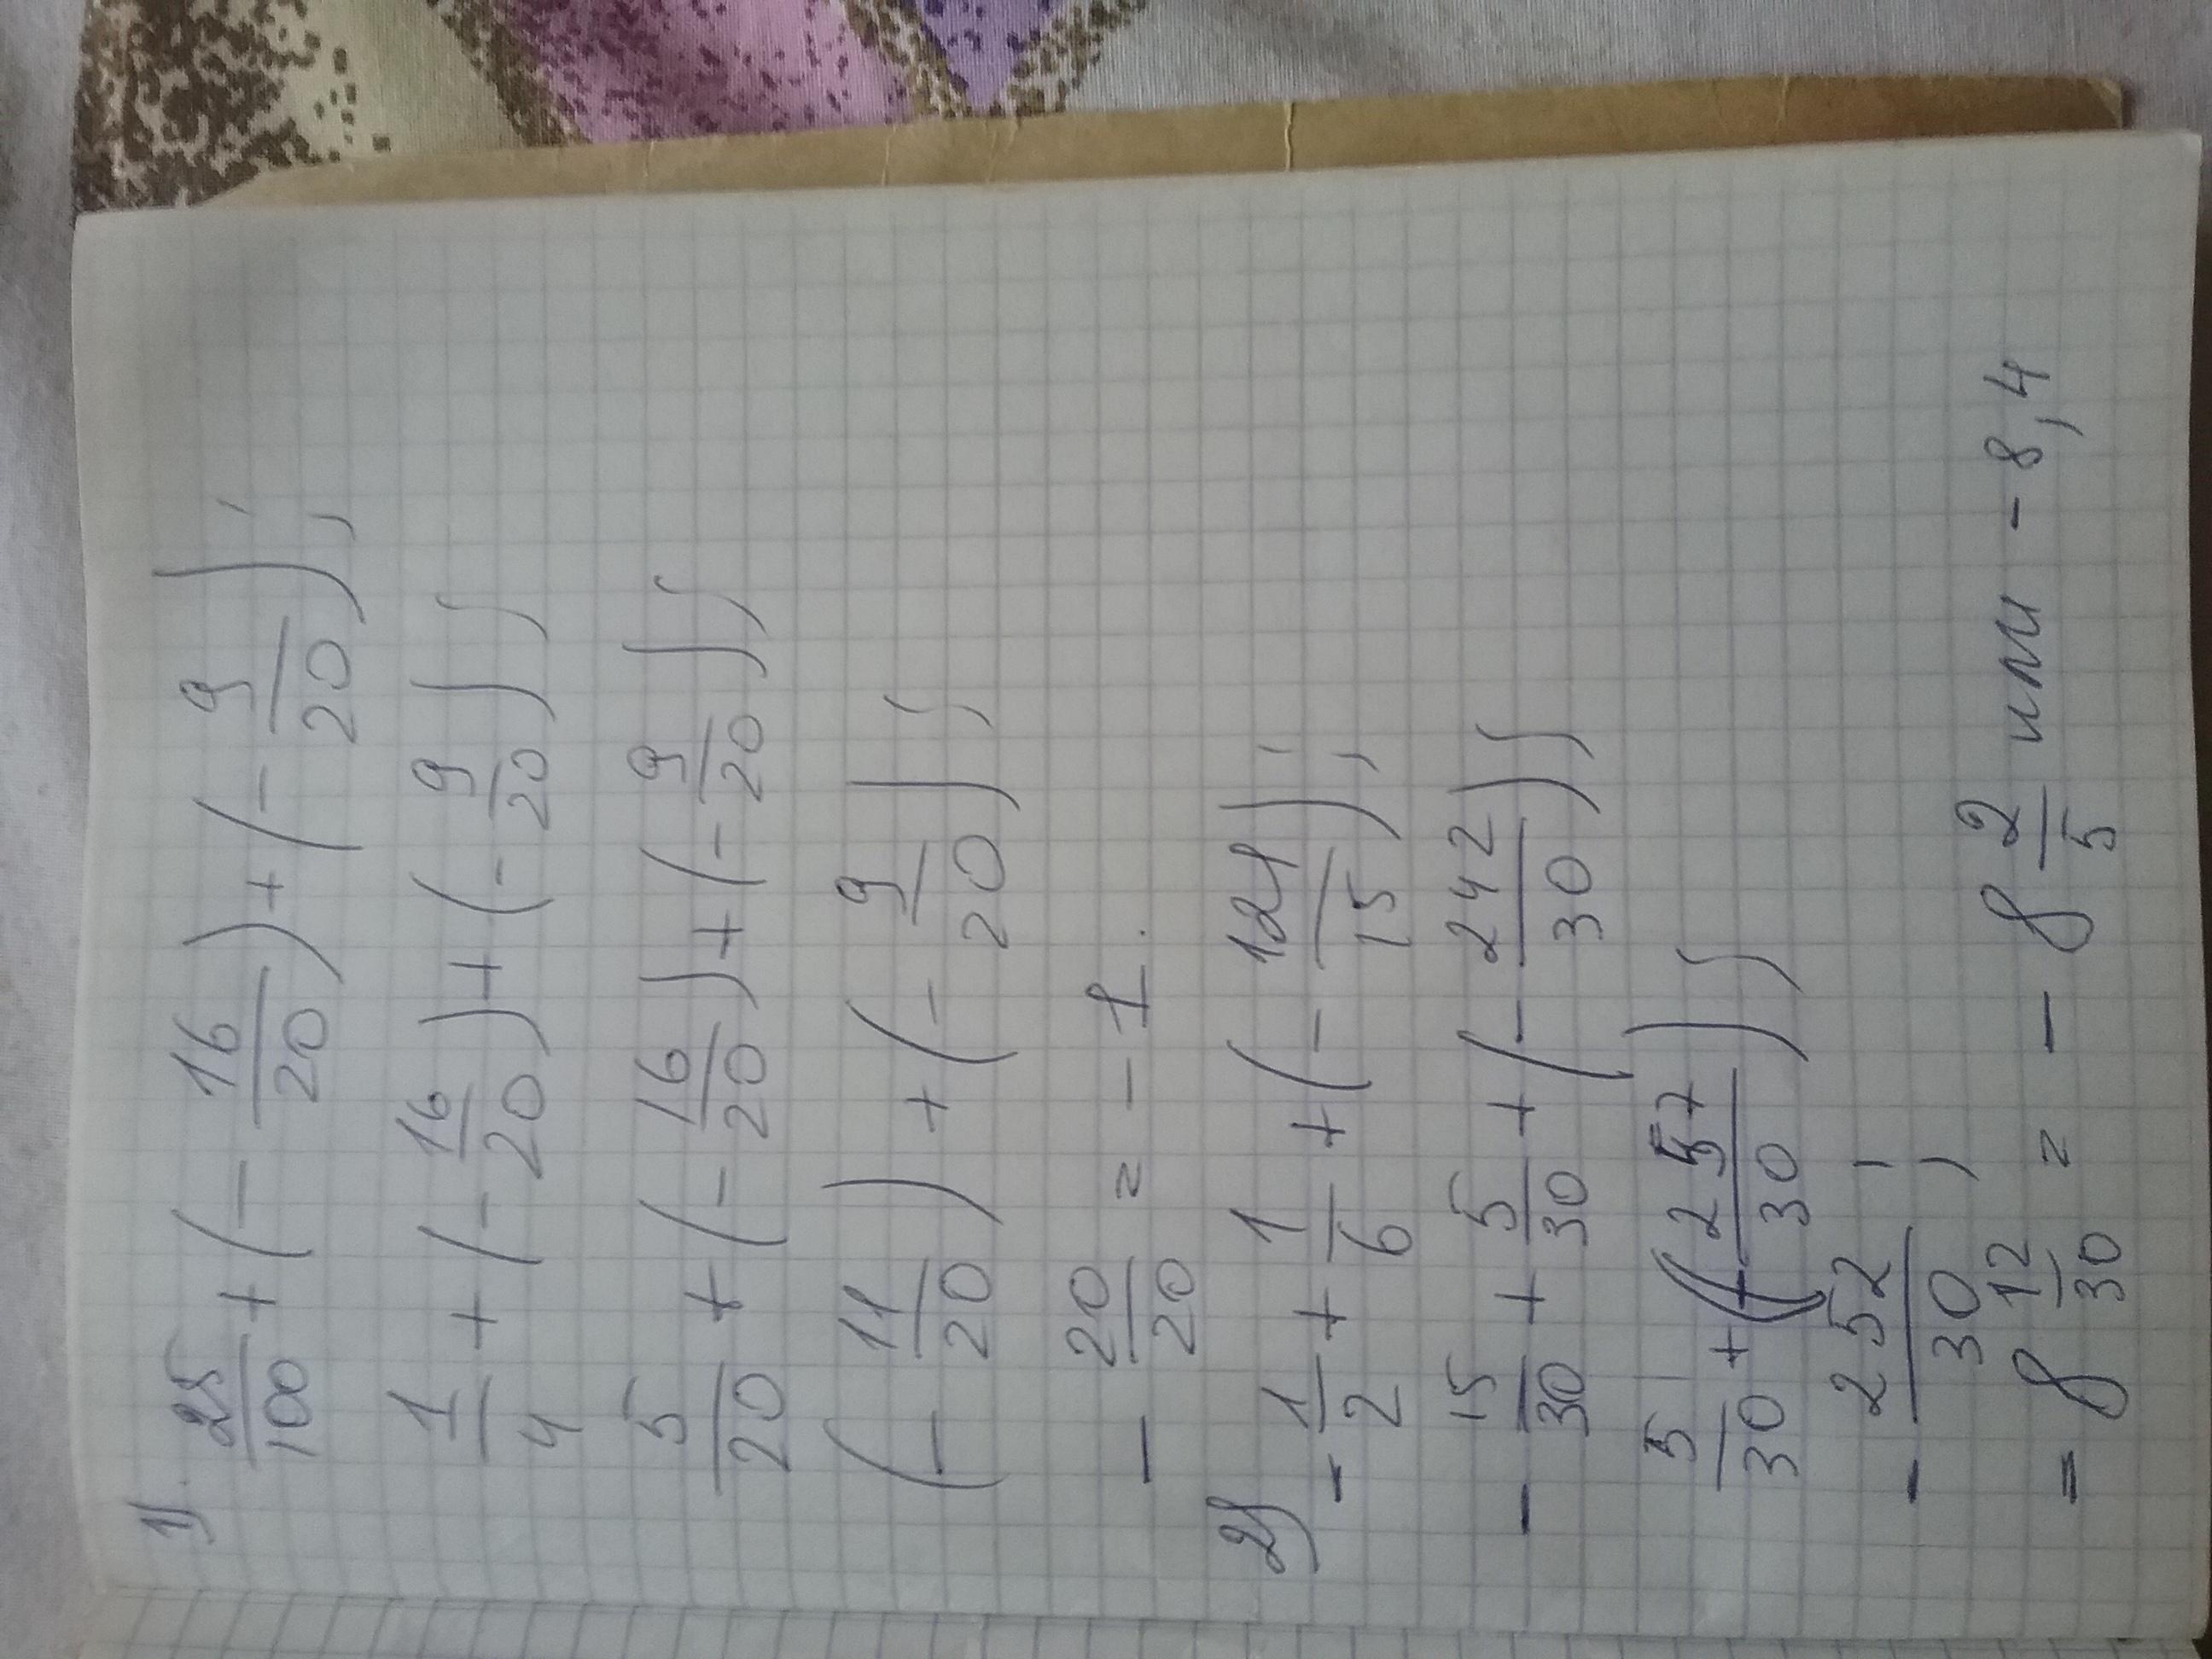 1).
25/100 + (- 16/20) + (- 9/20);
1/4 + (- 16/20) + (- 9/20);
5/20 + (- 16/20) + (- 9/20);
(- 11/20) + (- 9/20);
- 20/20 = - 1.
2)
- 1/2 + 1/6 + (- 121/15);
- 15/30 + 5/30 + (- 242/30);
5/30 + (- 257/30);
- 252/30;
= 8 12/30 = - 8 2/5 или - 8,4